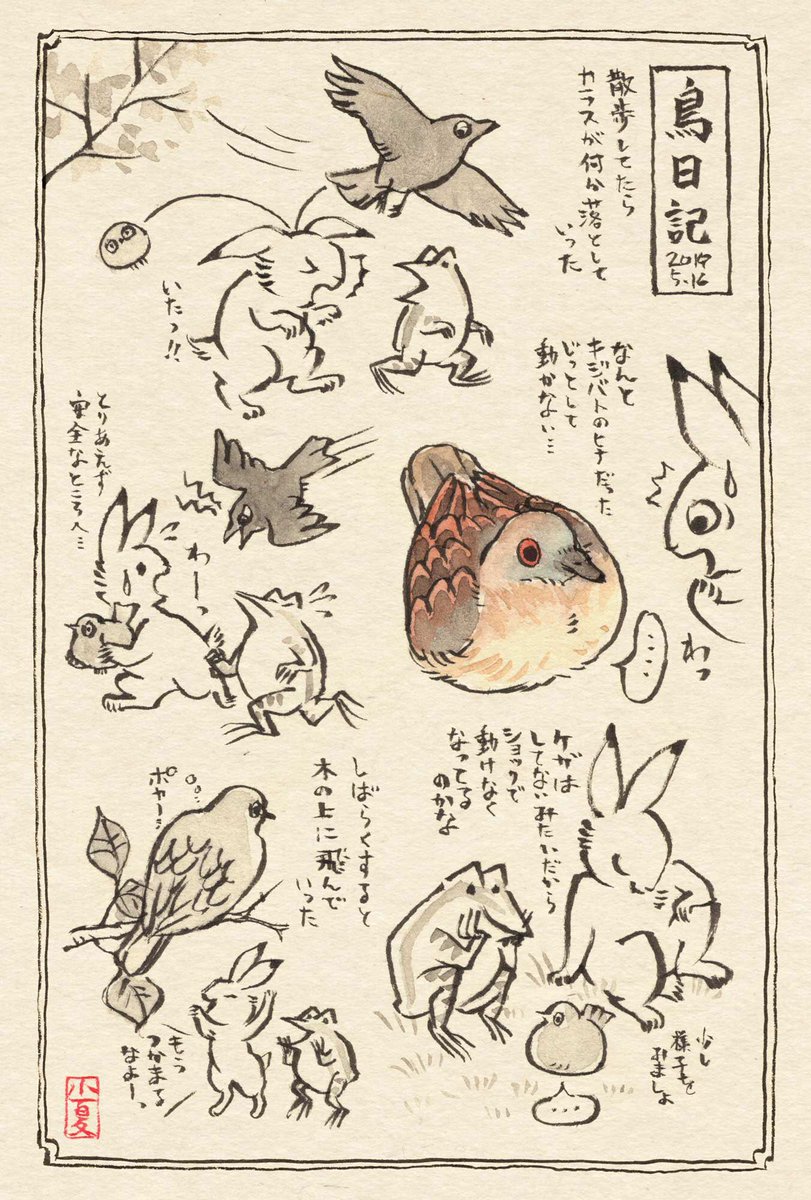 鳥日記
2019
5.16
散歩してたら
カラスが何か落として
いった
いたっ!!
なんと
キジバトのヒナだった
じっとして
動かない…
わっ
……
とりあえず
安全なところへ…
わーっ
ケガは
してないみたいだから
ショックで
動けなく
なってる
のかな
少し
様子を
みましょ
…
しばらくすると
木の上に飛んで
いった
ポヤー
もう
つかまる
なよーっ
小夏